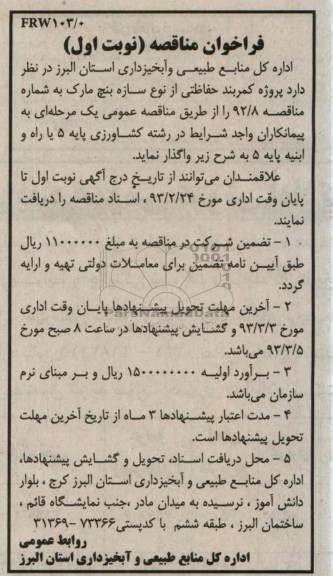 FRW۱۰۳/۰
فراخوان مناقصه (نوبت اول)
اداره کل منابع طبیعی وآبخیزداری استان البرز در نظر
دارد پروژه کمربند حفاظتی از نوع سازه بنچ مارک به شماره
مناقصه ۹۲/۸ را از طریق مناقصه عمومی یک مرحله‌ای به
پیمانکاران واجد شرایط در رشته کشاورزی پایه ۵ یا راه و
ابنیه پایه ۵ به شرح زیر واگذار نماید.
علاقمندان می‌توانند از تاریخ درج آگهی نوبت اول تا
پایان وقت اداری مورخ ۹۳/۲/۲۴ ، اسناد مناقصه را دریافت
نمایند.
۱ - تضمین شرکت در مناقصه به مبلغ ۱۱۰۰۰۰۰۰ ریال
طبق آیین نامه تضمین برای معاملات دولتی تهیه و ارایه
گردد.
۲ - آخرین مهلت تحویل پیشنهادها پایان وقت اداری
مورخ ۹۳/۳/۳ و گشایش پیشنهادها در ساعت ۸ صبح مورخ
۹۳/۳/۵ می‌باشد.
۳ - برآورد اولیه ۱۵۰۰۰۰۰۰۰۰ ریال و بر مبنای نرم
سازمان می‌باشد.
۴ - مدت اعتبار پیشنهادها ۳ ماه از تاریخ آخرین مهلت
تحویل پیشنهادها است.
۵ - محل دریافت اسناد، تحویل و گشایش پیشنهادها،
اداره کل منابع طبیعی و آبخیزداری استان البرز کرج ، بلوار
دانش آموز ، نرسیده به میدان مادر ،جنب نمایشگاه قائم ،
ساختمان البرز ، طبقه ششم با کدپستی ۷۳۳۶۶ -۳۱۳۶۹
روابط عمومی
اداره کل منابع طبیعی و آبخیزداری استان البرز